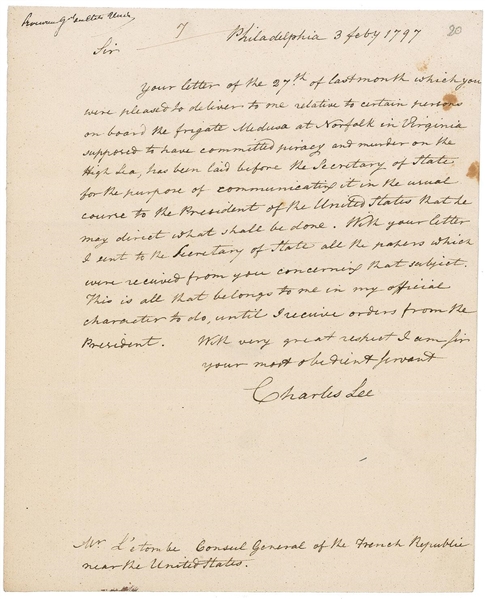 7
Philadelphia 3 feby 1797
20
Sir
Your letter of the 27th of last month which you
were pleased to deliver to me relative to certain persons
on board the frigate Medusa at Norfolk in Virginia
supposed to have committed piracy and murder on the
High Sea, has been laid before the Secretary of State,
for the purpose of communicating it in the usual
course to the President of the United States that he
may direct what shall be done. With your letter
I sent to the Secretary of State all the papers which
were received from you concerning that subject.
This is all that belongs to me in my official
character to do, until I receive orders from the
President. With very great respect I am Sir
your most obedient servant
Charles Lee
Mr. L'etombe Consul General of the French Republic
near the United States.